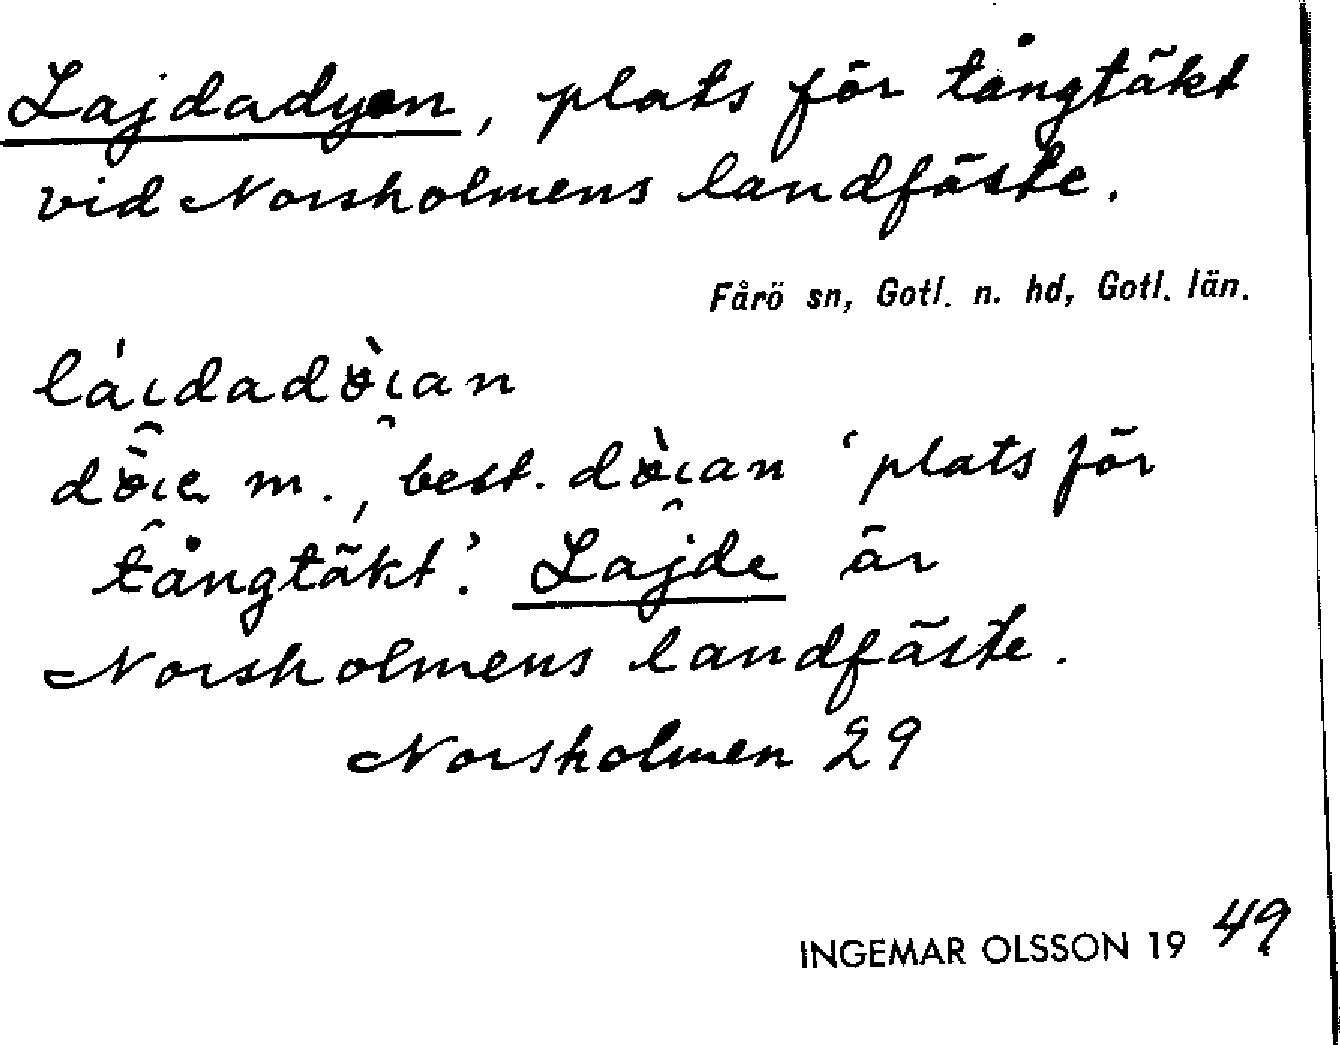 Lajdadyen, plats för tångtäkt
vid Norsholmens landfäste.
Fårö sn, Gotl. n. hd, Gotl. län.
best. 'plats för
tångtäkt'. Lajde är
Norsholmens landfäste.
Norsholmen 29
INGEMAR OLSSON 1949